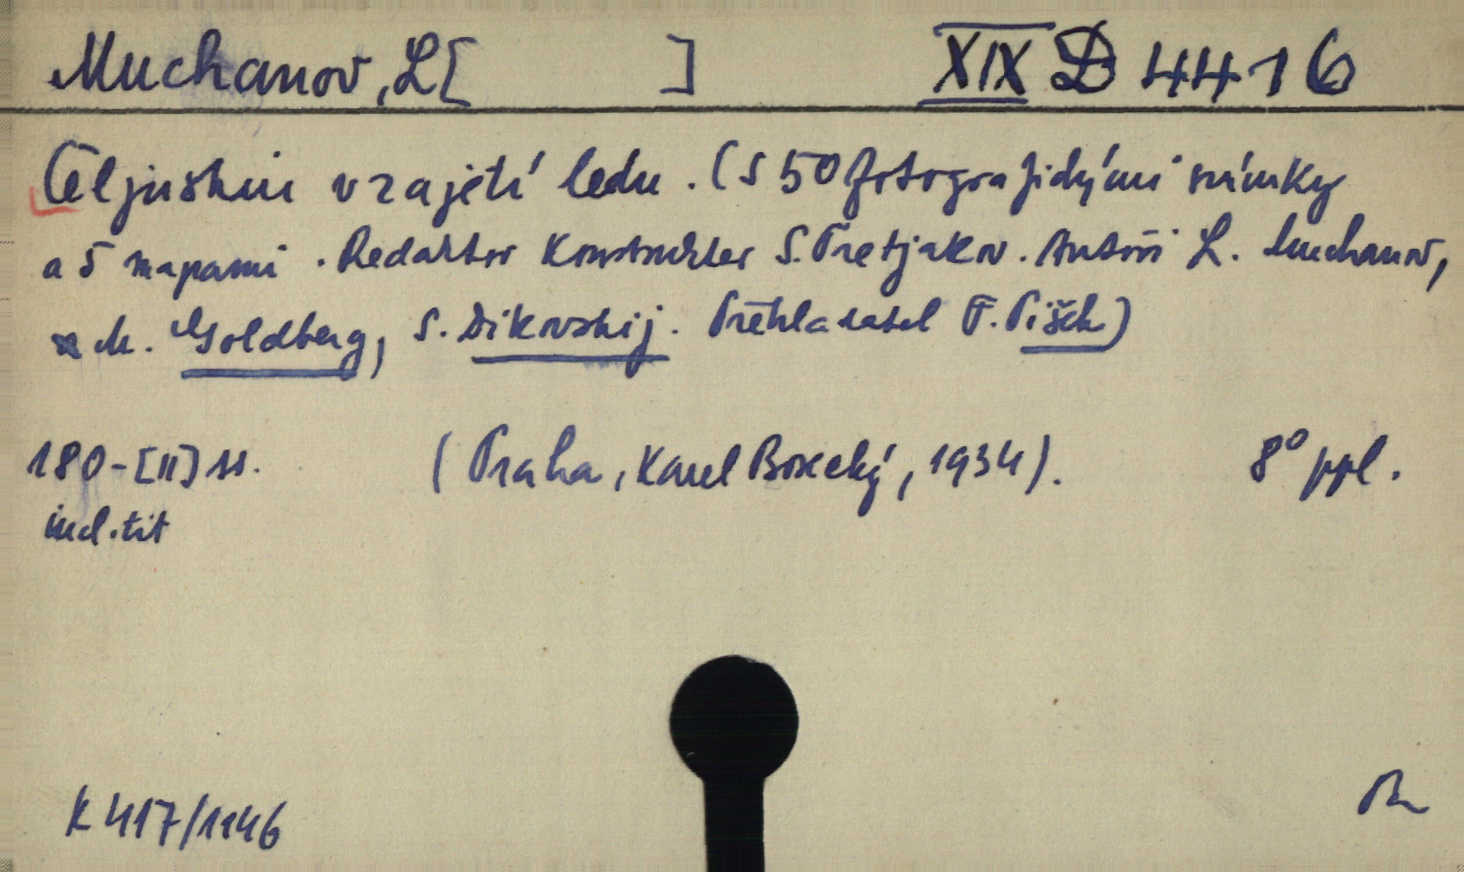 Muchanov, L[ ] XIX D 4416
Čeljuskin v zajetí ledu. (S 50 fotografickými snímky
a 5 mapami. Redaktor Konstrukter S. Tretjakov. Autoři L. Muchanov,
M. Goldberg, S. Dikovskij. Překladatel F. Píšek)
180-[II] ss. (Praha, Karel Borecký, 1934). 8° ppl.
incl. tit
K 417/1146